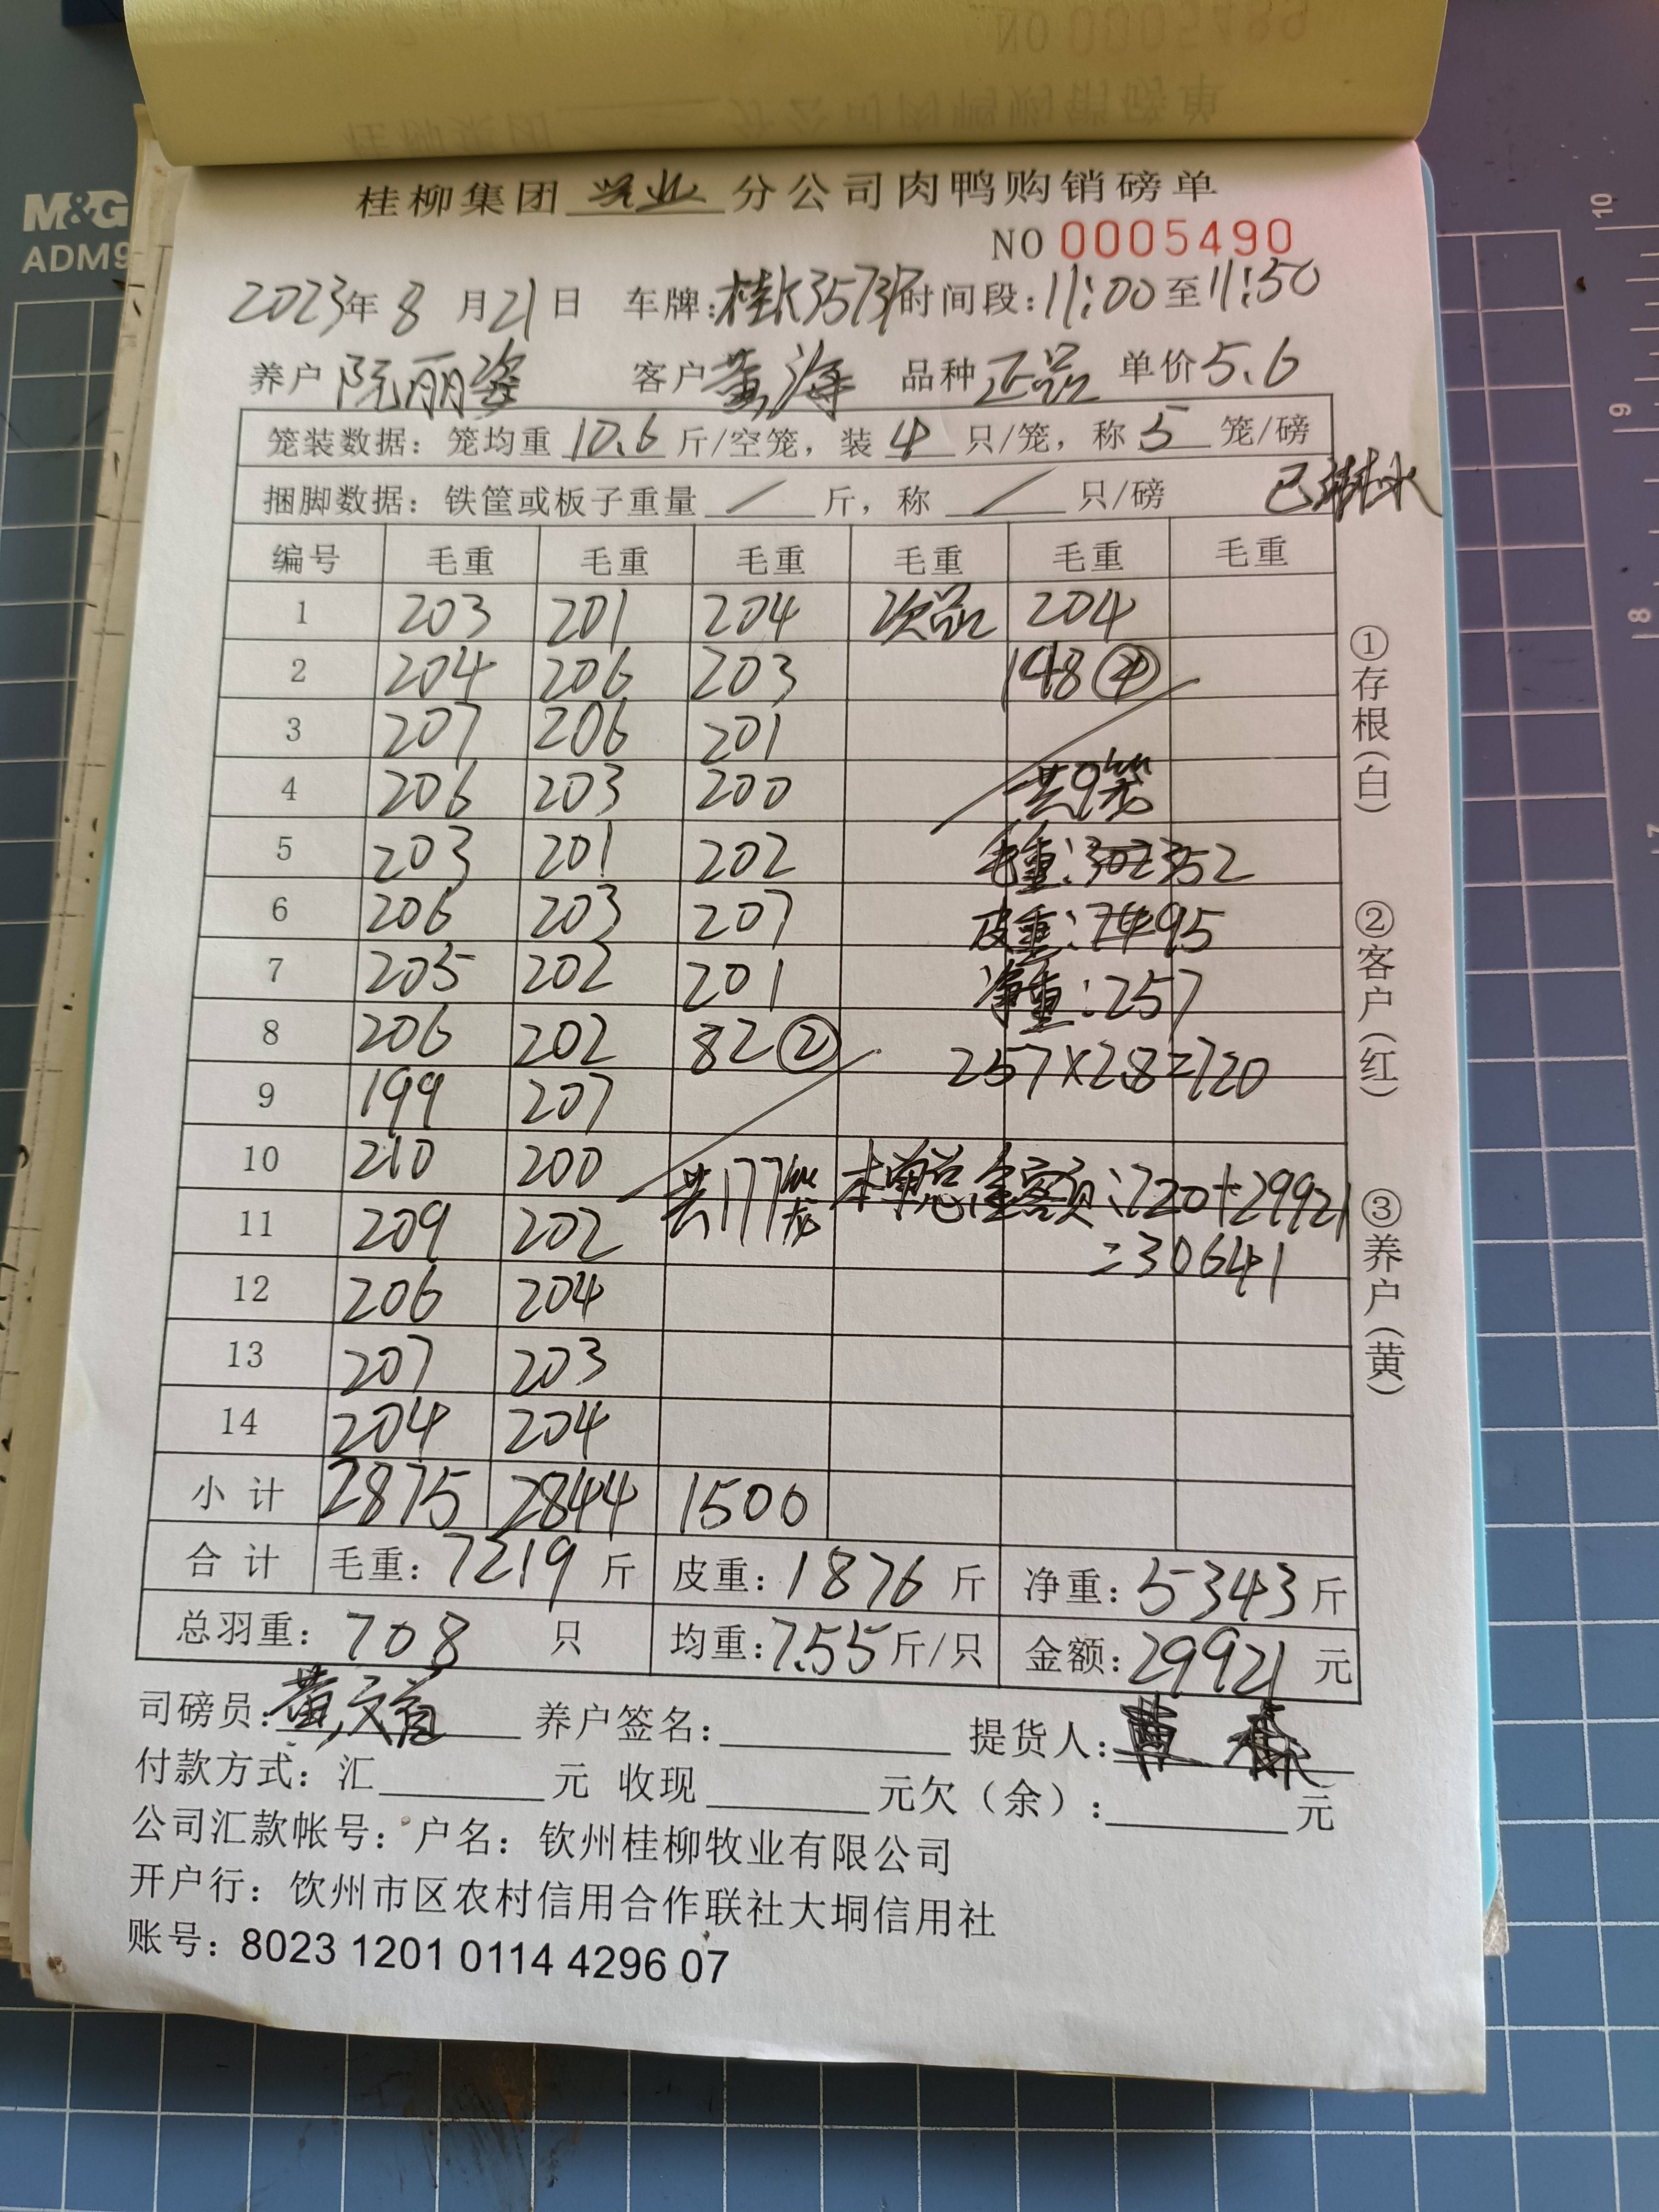 M&G
ADM9
NO 0005489
桂柳集团 分公司肉鸭购销磅单
桂柳集团 牧业 分公司肉鸭购销磅单
NO 0005490
2023年8月21日 车牌: 时间段:11:00至11:50
养户 阮丽姿 客户 黄海 品种 正品 单价 5.6
笼装数据:笼均重 10.6 斤/空笼,装 4 只/笼,称 5 笼/磅
捆脚数据:铁筐或板子重量 / 斤,称 / 只/磅
已淋水
编号 毛重 毛重 毛重 毛重 毛重 毛重
1 203 201 204 次品 204
2 204 206 203 148④
3 207 206 201
4 206 203 200 共9笼
5 203 201 202 毛重:302 352
6 206 203 207 皮重:74 95
7 205 202 201 净重:257
8 206 202 82② 257×2.8=720
9 199 207
10 210 200
11 209 202 共177笼 本单总金额:720+29921
=30641
12 206 204
13 207 203
14 204 204
小计 2875 2844 1500
合计 毛重:7219斤 皮重:1876斤 净重:5343斤
总羽重:708 只 均重:7.55斤/只 金额:29921元
司磅员: 养户签名: 提货人:
付款方式:汇 元 收现 元欠(余): 元
公司汇款帐号:户名:钦州桂柳牧业有限公司
开户行:饮州市区农村信用合作联社大垌信用社
账号:8023 1201 0114 4296 07
①存根(白)
②客户(红)
③养户(黄)
10
9
8
7